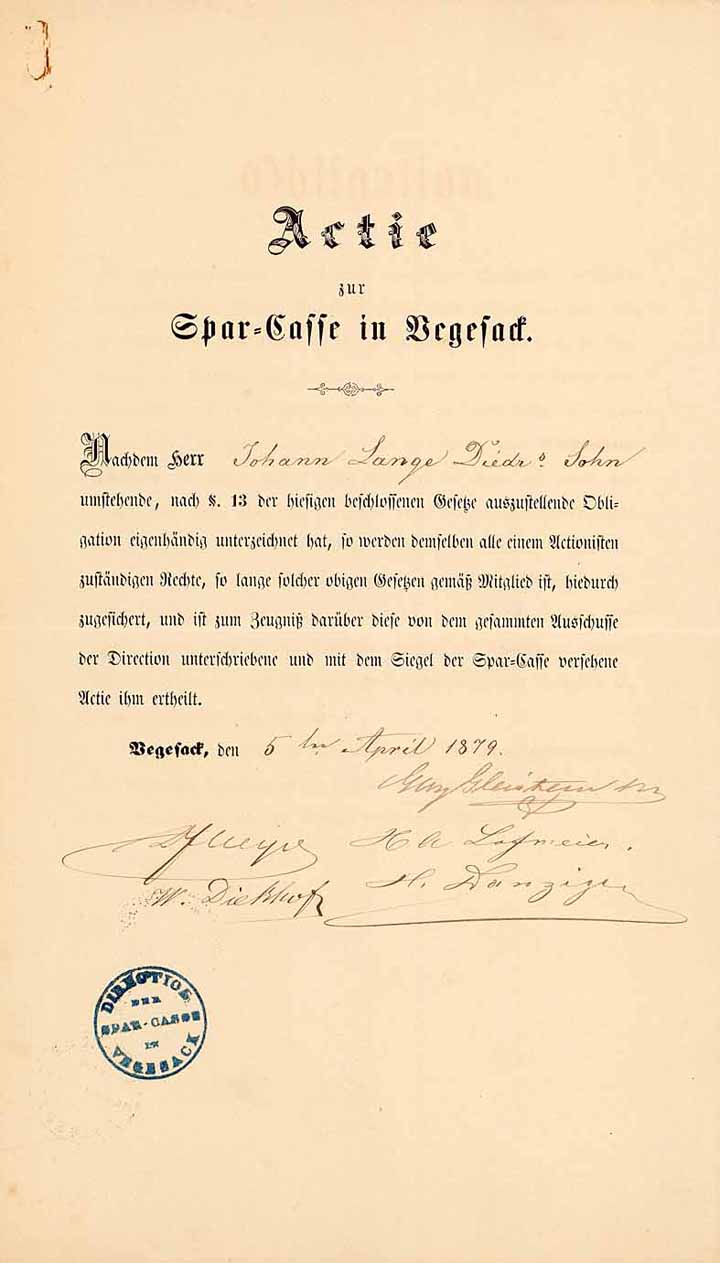 Actie
zur
Spar-Casse in Vegesack.
Nachdem Herr Johann Lange Diedr⁰. Sohn
umstehende, nach §. 13 der hiesigen beschlossenen Gesetze auszustellende Obli-
gation eigenhändig unterzeichnet hat, so werden demselben alle einem Actionisten
zuständigen Rechte, so lange solcher obigen Gesetzen gemäß Mitglied ist, hiedurch
zugesichert, und ist zum Zeugniß darüber diese von dem gesammten Ausschusse
der Direction unterschriebene und mit dem Siegel der Spar-Casse versehene
Actie ihm ertheilt.
Vegesack, den 5ten April 1879.
H. Danziger
W. Diekhof
DIRECTION
DER
SPAR-CASSE
IN
VEGESACK